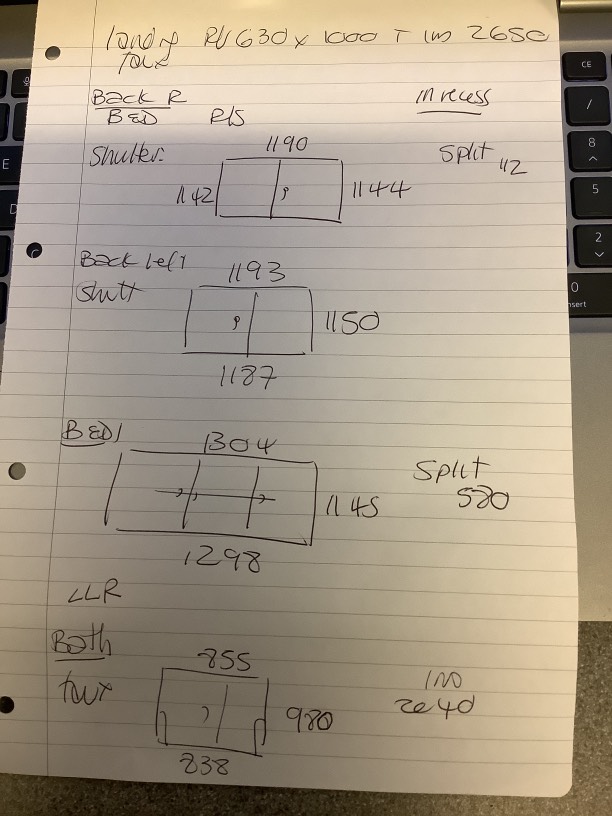 Landy RU 630 x 1000 T Im 2650
faux
Back R In recess
BED R/S
Shutter. 1190 Split 1/2
1142 1144
Back Left
Shutt 1193
1150
1187
BED 1 1304
Split
1145 520
1298
LLR
Bath 855
faux 980
838
CE
/
8
5
2
0
nsert
E
D